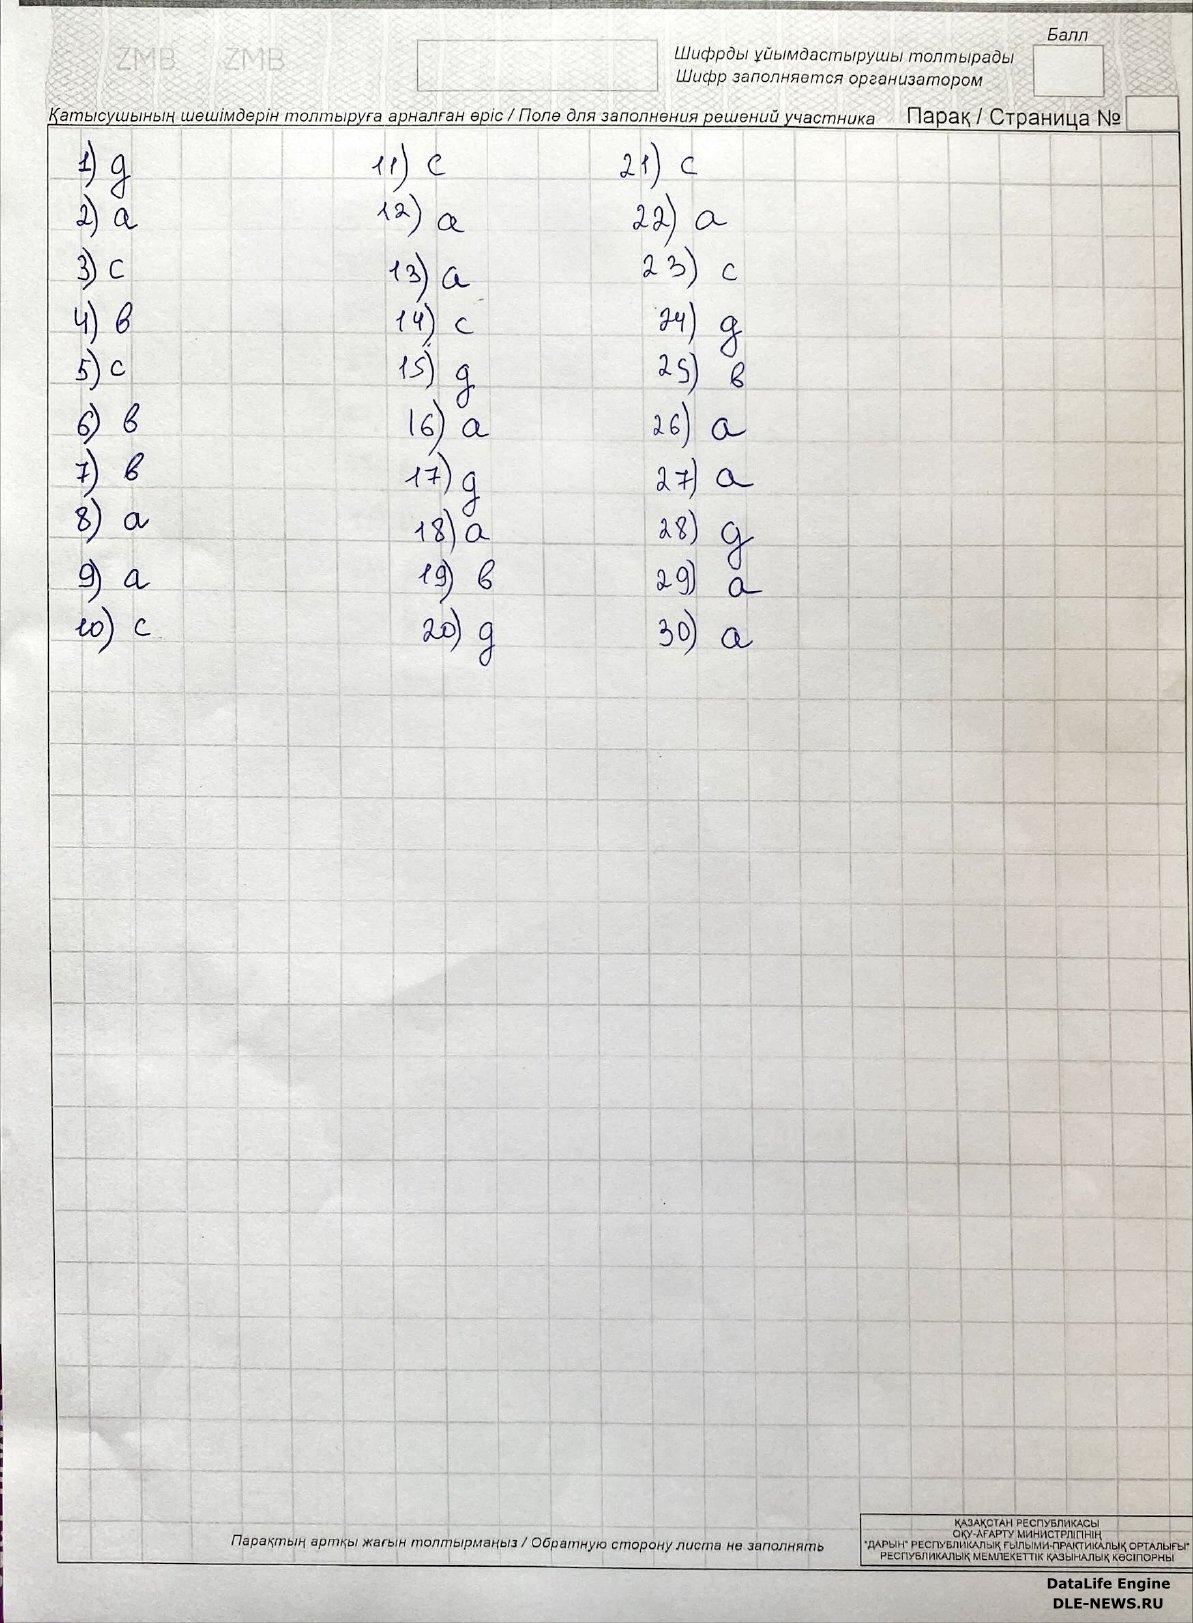 ZMB ZMB
Балл
Шифрды ұйымдастырушы толтырады
Шифр заполняется организатором
Қатысушының шешімдерін толтыруға арналған өріс / Поле для заполнения решений участника Парақ / Страница №
1) д 11) с 21) с
2) а 12) а 22) а
3) с 13) а 23) с
4) в 14) с 24) д
5) с 15) д 25) в
6) в 16) а 26) а
7) в 17) д 27) а
8) а 18) а 28) д
9) а 19) в 29) а
10) с 20) д 30) а
Парақтың артқы жағын толтырмаңыз / Обратную сторону листа не заполнять
ҚАЗАҚСТАН РЕСПУБЛИКАСЫ
ОҚУ-АҒАРТУ МИНИСТРЛІГІНІҢ
"ДАРЫН" РЕСПУБЛИКАЛЫҚ ҒЫЛЫМИ-ПРАКТИКАЛЫҚ ОРТАЛЫҒЫ"
РЕСПУБЛИКАЛЫҚ МЕМЛЕКЕТТІК ҚАЗЫНАЛЫҚ КӘСІПОРНЫ
DataLife Engine
DLE-NEWS.RU